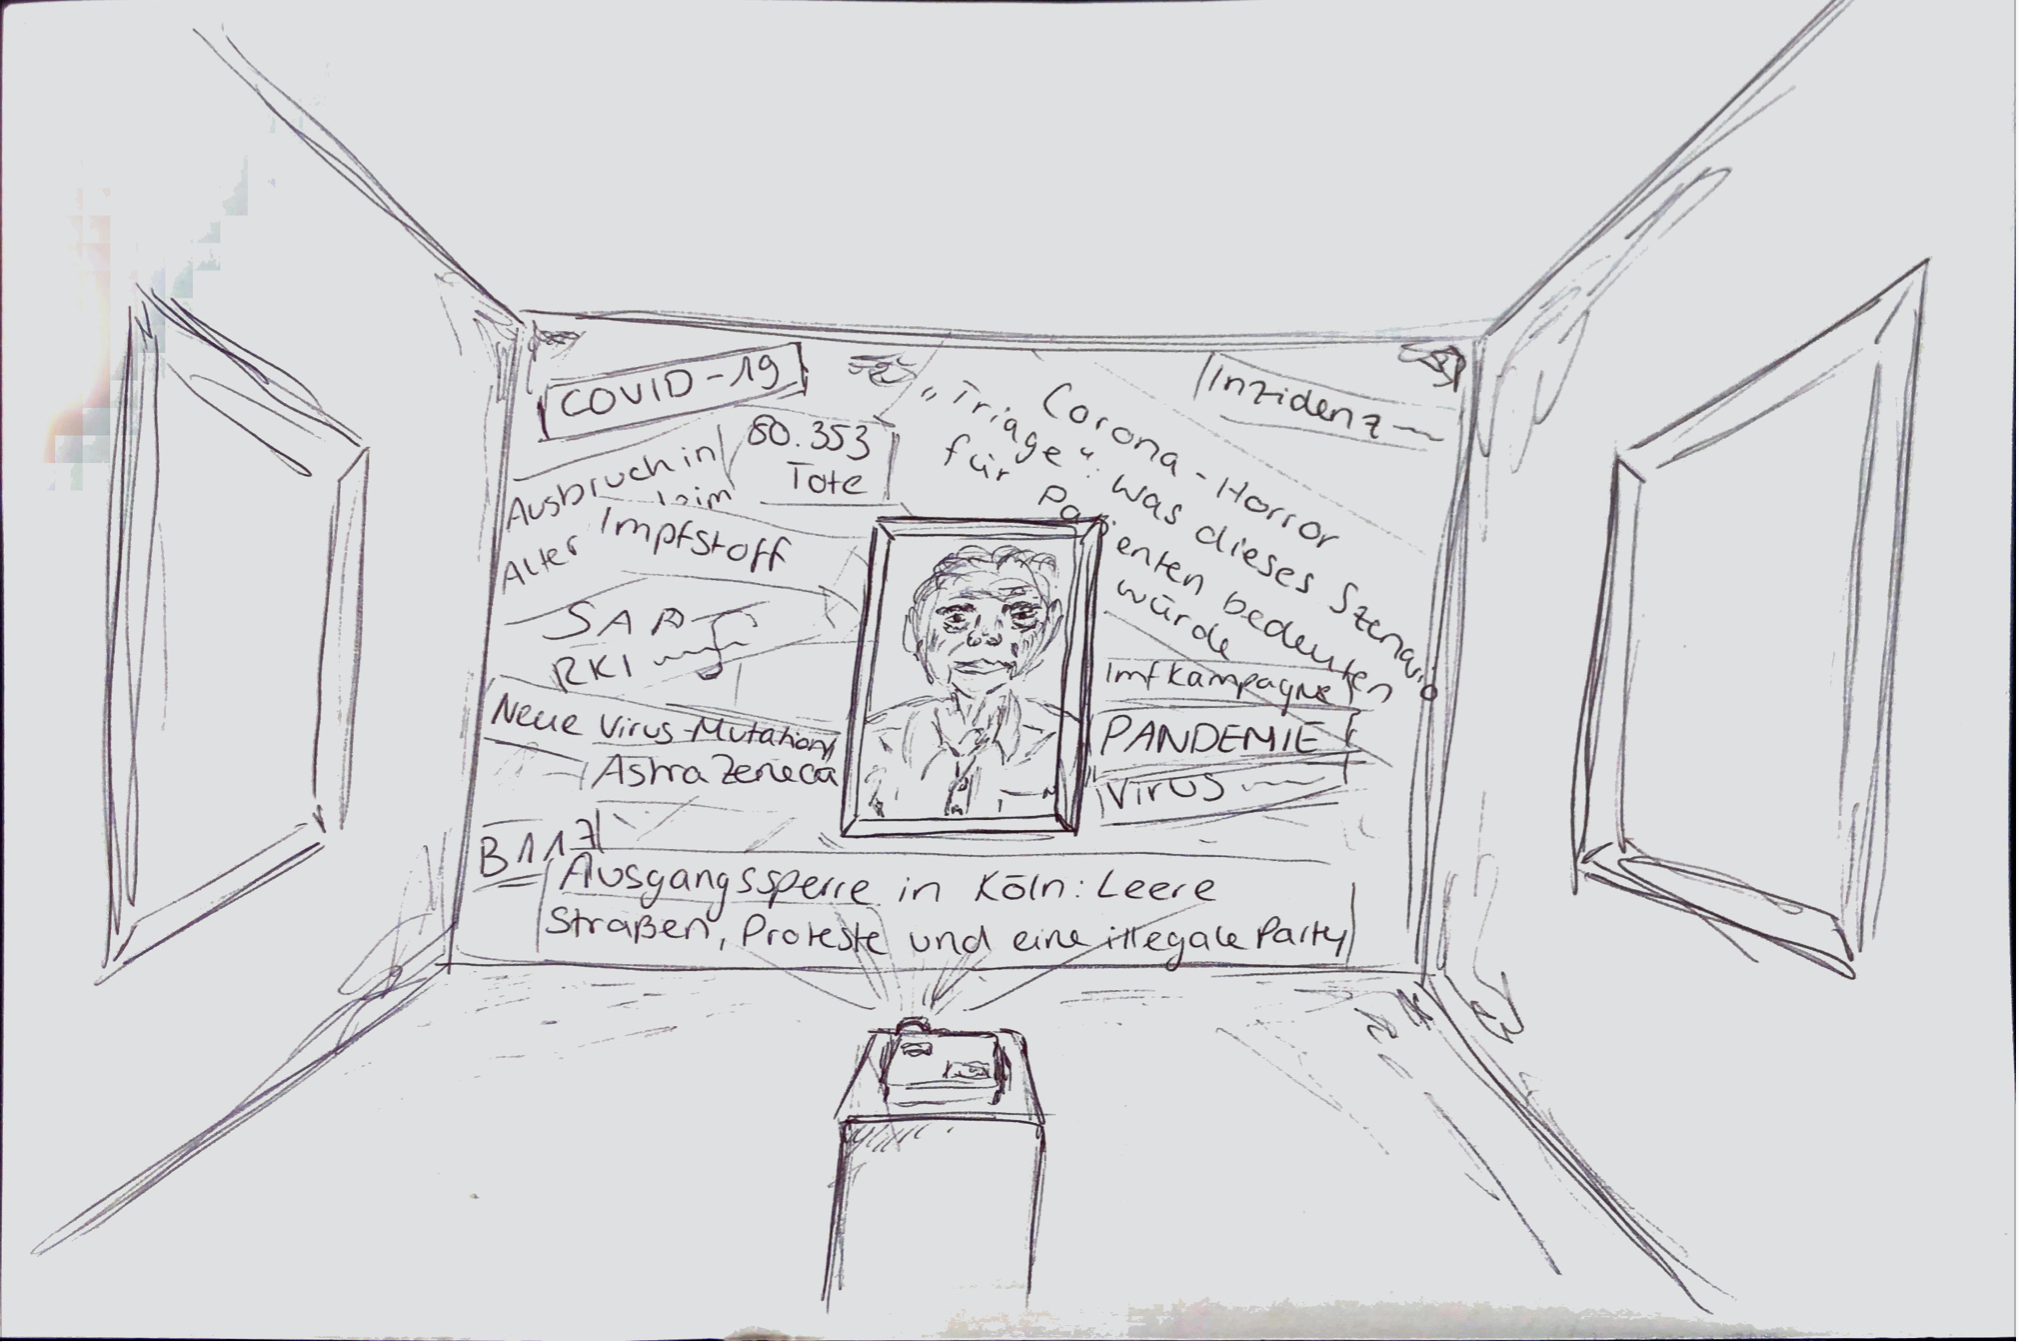 COVID-19
80.353
Tote
Ausbruch in
Alter
Impfstoff
SAP
RKI
Neue Virus-Mutation
AstraZeneca
B117
Corona-Horror
„Triage“: Was dieses Szenario
für Patienten bedeuten
würde
Inzidenz
Imfkampagne
PANDEMIE
Virus
Ausgangssperre in Köln: Leere
Straßen, Proteste und eine illegale Party